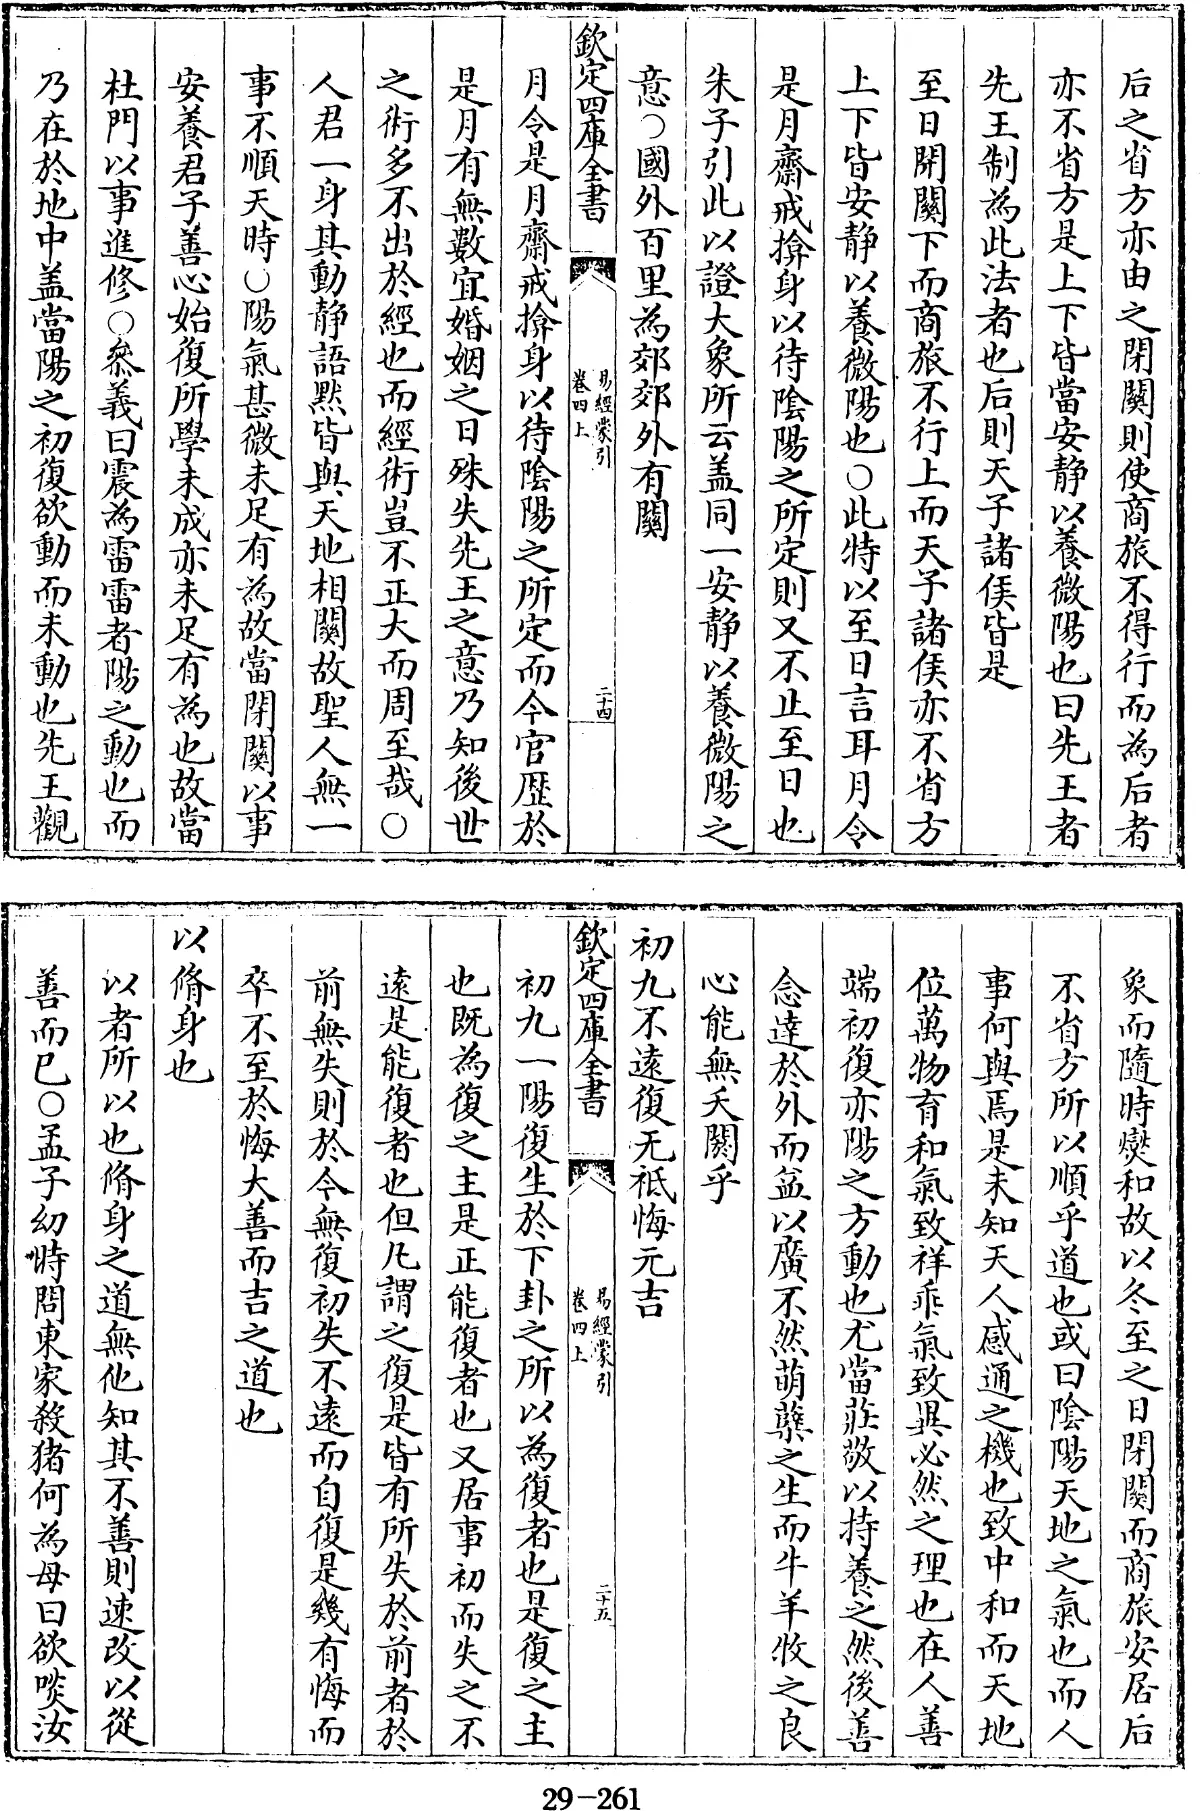 后之省方亦由之閉關則使商旅不得行而為后者
亦不省方是上下皆當安静以養微陽也曰先王者
先王制為此法者也后則天子諸侯皆是
至日閉關下而商旅不行上而天子諸侯亦不省方
上下皆安静以養微陽也○此特以至日言耳月令
是月齋戒揜身以待陰陽之所定則又不止至日也
朱子引此以證大象所云盖同一安静以養微陽之
意○國外百里為郊郊外有關
欽定四庫全書
易經蒙引
卷四上
二十四
月令是月齋戒揜身以待陰陽之所定而今官歴於
是月有無數宜婚姻之日殊失先王之意乃知後世
之術多不出於經也而經術豈不正大而周至哉○
人君一身其動静語黙皆與天地相關故聖人無一
事不順天時○陽氣甚微未足有為故當閉關以事
安養君子善心始復所學未成亦未足有為也故當
杜門以事進修○叅義曰震為雷雷者陽之動也而
乃在於地中盖當陽之初復欲動而未動也先王觀
象而隨時爕和故以冬至之日閉關而商旅安居后
不省方所以順乎道也或曰陰陽天地之氣也而人
事何與焉是未知天人感通之機也致中和而天地
位萬物育和氣致祥乖氣致異必然之理也在人善
端初復亦陽之方動也尤當莊敬以持養之然後善
念達於外而益以廣不然萌蘖之生而牛羊牧之良
心能無夭閼乎
初九不遠復无祗悔元吉
欽定四庫全書
易經蒙引
卷四上
二十五
初九一陽復生於下卦之所以為復者也是復之主
也既為復之主是正能復者也又居事初而失之不
遠是能復者也但凡謂之復是皆有所失於前者於
前無失則於今無復初失不遠而自復是幾有悔而
卒不至於悔大善而吉之道也
以脩身也
以者所以也脩身之道無他知其不善則速改以從
善而已○孟子幼時問東家殺猪何為母曰欲啖汝
29-261